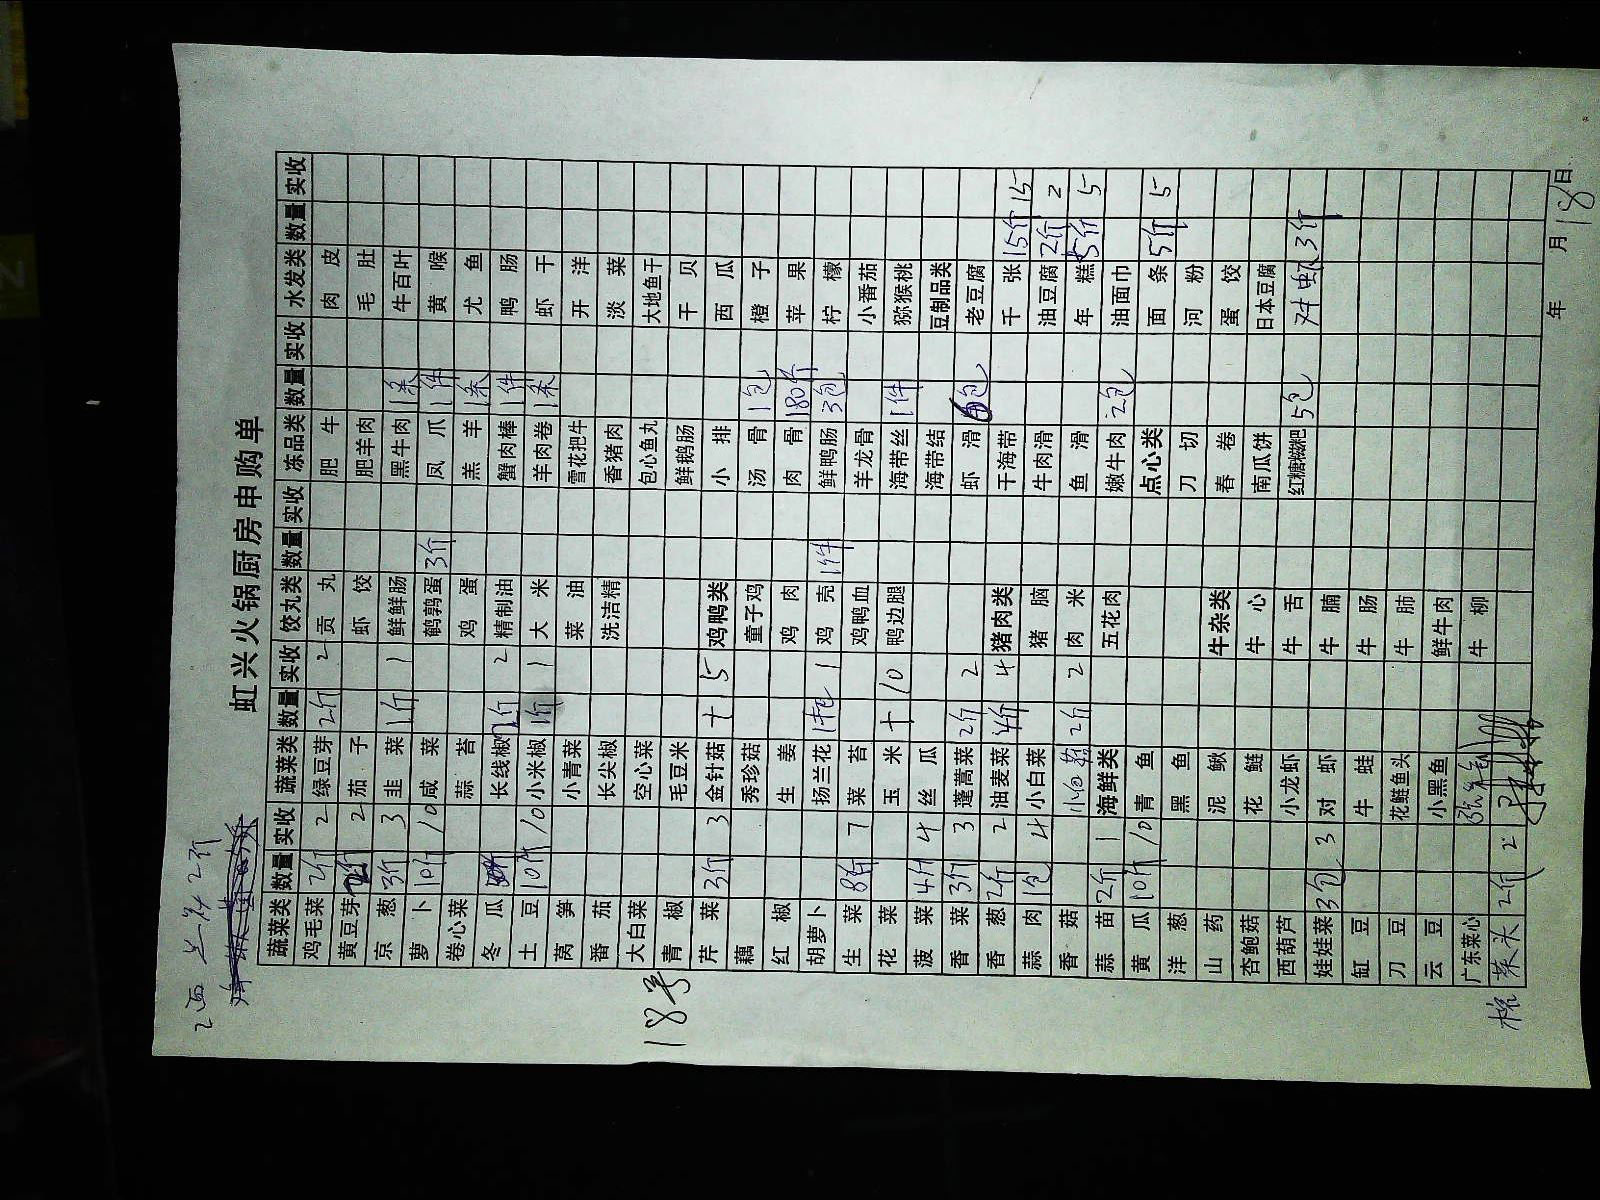 2两 2斤
虹兴火锅厨房申购单
蔬菜类 数量 实收 蔬菜类 数量 实收 饺丸类 数量 实收 冻品类 数量 实收 水发类 数量 实收
鸡毛菜 2斤 2 绿豆芽 2斤 2 贡丸 肥牛 肉皮
黄豆芽 2斤 2 茄子 虾饺 肥羊肉 毛肚
京葱 3斤 3 韭菜 1斤 1 鲜鲜肠 黑牛肉 1条 牛百叶
萝卜 10斤 10 咸菜 鹌鹑蛋 3斤 凤爪 1件 黄喉
卷心菜 蒜苔 鸡蛋 羔羊 1条 尤鱼
冬瓜 长线椒 2斤 2 精制油 蟹肉棒 1件 鸭肠
土豆 10斤 10 小米椒 1斤 1 大米 羊肉卷 1条 虾干
莴笋 小青菜 菜油 雪花把牛 开洋
番茄 长尖椒 洗洁精 香猪肉 淡菜
大白菜 空心菜 包心鱼丸 大地鱼干
青椒 毛豆米 鲜鹅肠 干贝
芹菜 3斤 3 金针菇 十 15 鸡鸭类 小排 西瓜
藕 秀珍菇 童子鸡 汤骨 1包 橙子
红椒 生姜 鸡肉 肉骨 180斤 苹果
胡萝卜 扬兰花 1 鸡壳 1件 鲜鸭肠 3包 柠檬
生菜 8斤 7 菜苔 鸡鸭血 羊龙骨 小番茄
花菜 玉米 十 10 鸭边腿 海带丝 1件 猕猴桃
菠菜 4斤 4 丝瓜 海带结 豆制品类
香菜 3斤 3 蓬蒿菜 2斤 2 虾滑 6包 老豆腐
香葱 2斤 2 油麦菜 4斤 4 猪肉类 干海带 千张 15斤 15
蒜肉 1包 4 小白菜 猪脑 牛肉滑 油豆腐 2斤 2
香菇 2斤 2 肉米 鱼滑 年糕 5斤 5
蒜苗 2斤 1 海鲜类 五花肉 嫩牛肉 2包 油面巾
黄瓜 10斤 10 青鱼 点心类 面条 5斤 5
洋葱 黑鱼 刀切 河粉
山药 泥鳅 牛杂类 春卷 蛋饺
杏鲍菇 花鲢 牛心 南瓜饼 日本豆腐
西葫芦 小龙虾 牛舌 红糖糍粑 5包 对虾 3斤
娃娃菜 3包 3 对虾 牛腩
缸豆 牛蛙 牛肠
刀豆 花鲢鱼头 牛肺
云豆 小黑鱼 鲜牛肉
广东菜心 牛柳
菜头 2斤 2
18号
年 月 18 日